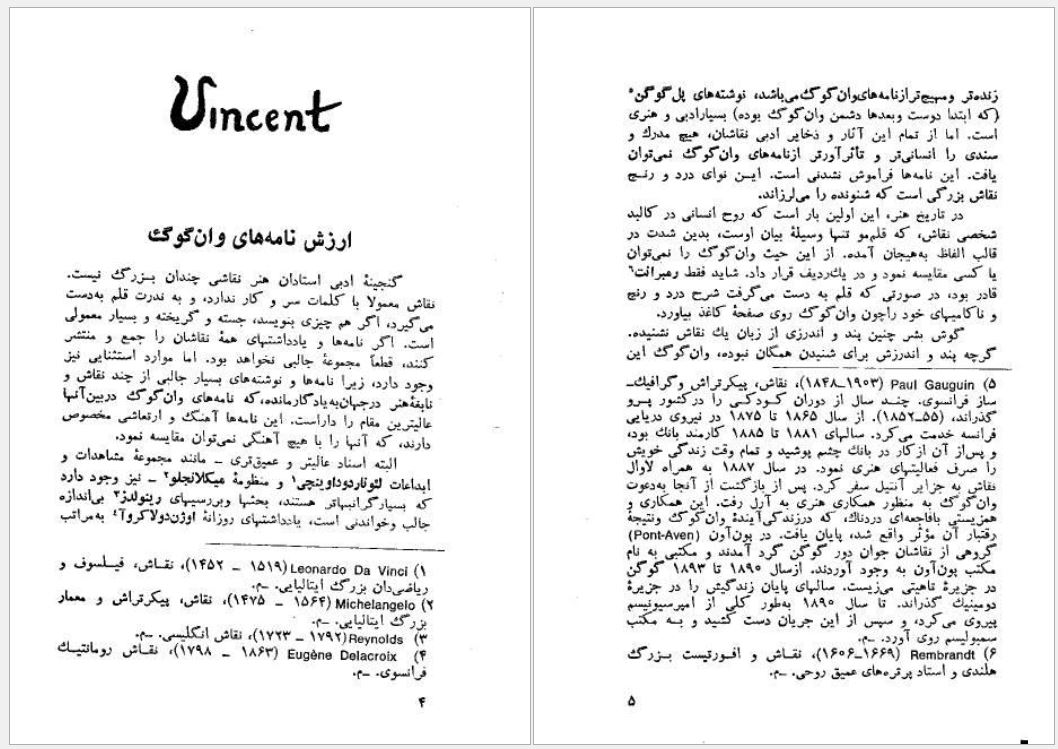 Vincent
ارزش نامه‌های وان‌گوگ
گنجینهٔ ادبی استادان هنر نقاشی چندان بـزرگ نیست.
نقاش معمولا با کلمات سر و کار ندارد، و به ندرت قلم به‌دست
می‌گیرد، اگر هم چیزی بنویسد، جسته و گریخته و بسیار معمولی
است. اگر نامه‌ها و یادداشتهای همهٔ نقاشان را جمع و منتشر
کنند، قطعاً مجموعهٔ جالبی نخواهد بود. اما موارد استثنایی نیز
وجود دارد، زیرا نامه‌ها و نوشته‌های بسیار جالبی از چند نقاش و
نابغهٔ‌هنر درجهان‌به‌یادگارمانده،که نامه‌های وان‌گوگ دربین‌آنها
عالیترین مقام را داراست. این نامه‌ها آهنگ و ارتعاشی مخصوص
دارند، که آنها را با هیچ آهنگی نمی‌توان مقایسه نمود.
البته اسناد عالیتر و عمیق‌تری ـ مانند مجموعهٔ مشاهدات و
ابداعات لئوناردوداوینچی۱ و منظومهٔ میکلانجلو۲ ـ نیز وجود دارد
که بسیارگرانبهاتر هستند، بحثها وبررسیهای رینولدز۳ بی‌اندازه
جالب وخواندنی است، یادداشتهای روزانهٔ اوژن‌دولاکروآ۴ به‌مراتب
۱) Leonardo Da Vinci (۱۵۱۹ ـ ۱۴۵۲)، نقـاش، فیـلسوف و
ریاضی‌دان بزرگ ایتالیایی. ـم.
۲) Michelangelo (۱۵۶۴ ـ ۱۴۷۵)، نقاش، پیکرتراش و معمار
بزرگ ایتالیایی. ـم.
۳) Reynolds (۱۷۹۲ ـ ۱۷۲۳)، نقاش انگلیسی. ـم.
۴) Eugène Delacroix (۱۸۶۳ ـ ۱۷۹۸)، نقـاش رومانتیـك
فرانسوی. ـم.
۴
زنده‌تر ومهیج‌ترازنامه‌های‌وان‌گوگ‌می‌باشد، نوشته‌های پل‌گوگن۵
(که ابتدا دوست وبعدها دشمن وان‌گوگ بوده) بسیارادبی و هنری
است. اما از تمام این آثار و ذخایر ادبی نقاشان، هیچ مدرك و
سندی را انسانی‌تر و تأثرآورتر ازنامه‌های وان‌گوگ نمی‌توان
یافت. این نامه‌ها فراموش نشدنی است. ایـن نوای درد و رنـج
نقاش بزرگی است که شنونده را می‌لرزاند.
در تاریخ هنر، این اولین بار است که روح انسانی در کالبد
شخصی نقاش، که قلم‌مو تنها وسیلهٔ بیان اوست، بدین شدت در
قالب الفاظ به‌هیجان آمده. از این حیث وان‌گوگ را نمی‌توان
با کسی مقایسه نمود و در یك‌ردیف قرار داد. شاید فقط رمبرانت۶
قادر بود، در صورتی که قلم به دست می‌گرفت شرح درد و رنج
و ناکامیهای خود راچون وان‌گوگ روی صفحهٔ کاغذ بیاورد.
گوش بشر چنین پند و اندرزی از زبان یك نقاش نشنیده.
گرچه پند و اندرزش برای شنیدن همگان نبوده، وان‌گوگ این
۵) Paul Gauguin (۱۹۰۳ـ۱۸۴۸)، نقاش، پیکرتراش وگرافیك‌ـ
ساز فرانسوی. چنـد سال از دوران کـودکـی را درکشور پـرو
گذراند، (۵۵ـ۱۸۵۲). از سال ۱۸۶۵ تا ۱۸۷۵ در نیروی دریایی
فرانسه خدمت می‌کرد. سالهای ۱۸۸۱ تا ۱۸۸۵ کارمند بانك بود،
و پس‌از آن ازکار در بانك چشم پوشید و تمام وقت زندگی خویش
را صرف فعالیتهای هنری نمود. در سال ۱۸۸۷ به همراه لاوال
نقاش به جزایر آنتیل سفر کرد. پس از بازگشت از آنجا به‌دعوت
وان‌گوگ به منظور همکاری هنری به آرل رفت. این همکاری و
همزیستی بافاجعه‌ای دردناك، که درزندگی‌آیندهٔ وان‌گوگ ونتیجهٔ
رقتبار آن مؤثر واقع شد، پایان یافت. در پون‌آون (Pont-Aven)
گروهی از نقاشان جوان دور گوگن گرد آمدند و مکتبی به نام
مکتب پون‌آون به وجود آوردند. ازسال ۱۸۹۰ تا ۱۸۹۳ گوگن
در جزیرهٔ تاهیتی می‌زیست. سالهای پایان زندگیش را در جزیرهٔ
دومینیك گذراند. تا سال ۱۸۹۰ به‌طور کلی از امپرسیونیسم
پیروی می‌کرد، و سپس از این جریان دست کشید و بـه مکتب
سمبولیسم روی آورد. ـم.
۶) Rembrandt (۱۶۶۹ـ۱۶۰۶)، نقـاش و افـورتیست بـزرگ
هلندی و استاد پرتره‌های عمیق روحی. ـم.
۵